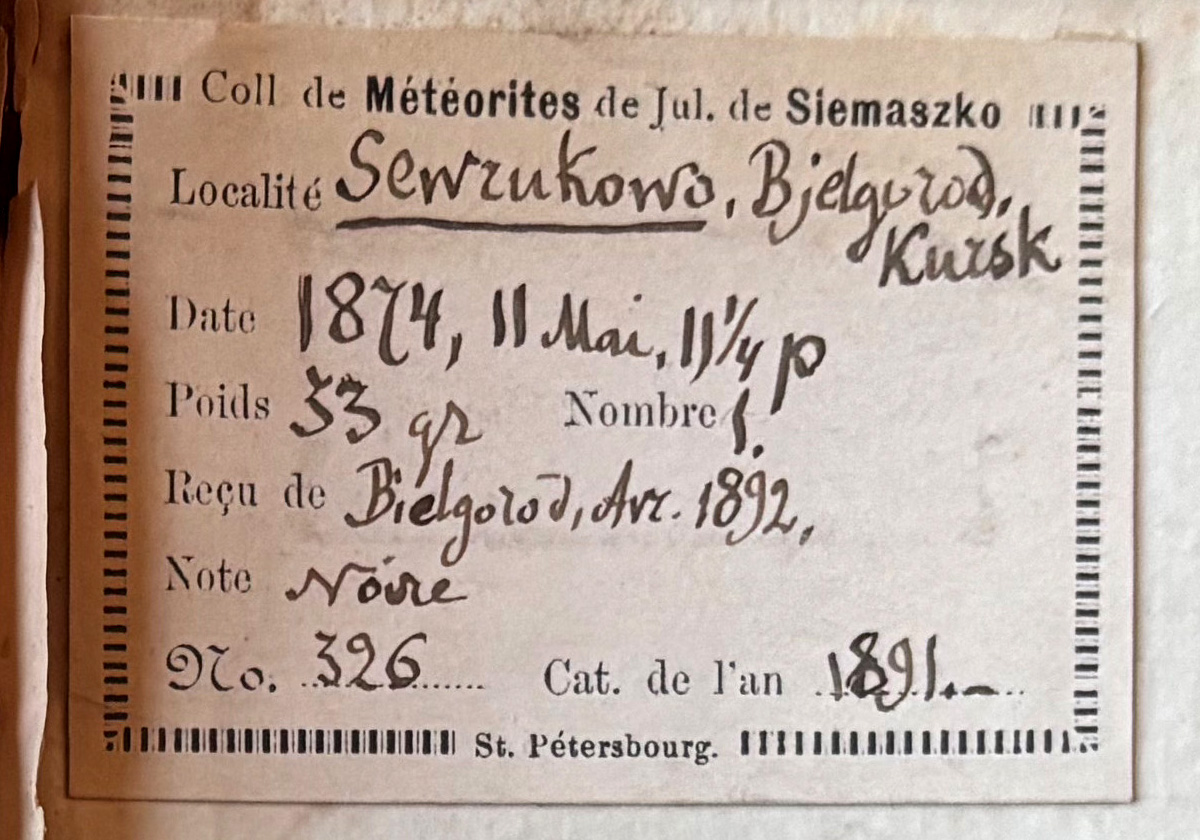 Coll de Météorites de Jul. de Siemaszko
Localité Sewrukowo, Bjelgorod,
Kursk
Date 1874, 11 Mai, 11 1/4 p
Poids 33 gr Nombre 1.
Reçu de Bielgorod, Avr. 1892,
Note Noire
No. 326 Cat. de l'an 1891.-
St. Pétersbourg.